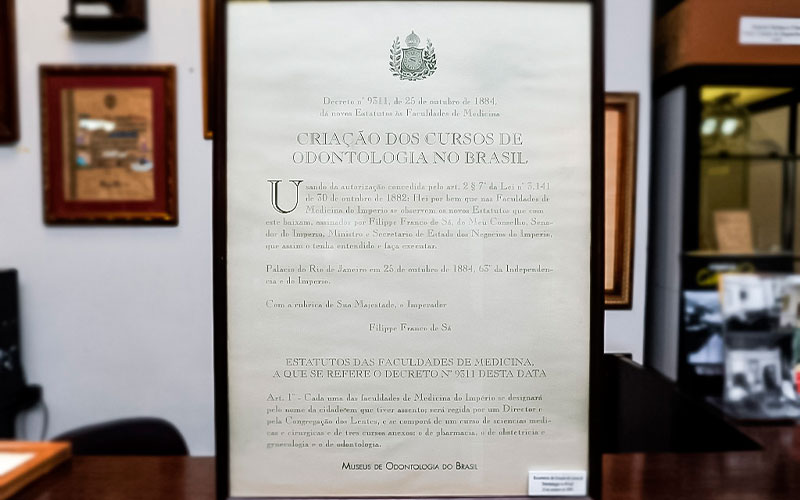 Decreto nº 9311, de 25 de outubro de 1884,
da novos Estatutos às Faculdades de Medicina
CRIAÇÃO DOS CURSOS DE
ODONTOLOGIA NO BRASIL
Usando da autorização concedida pelo art. 2 § 7º da Lei nº 3.141
de 30 de outubro de 1882: Hei por bem que nas Faculdades de
Medicina do Imperio se observem os novos Estatutos que com
este baixam, assinados por Filippe Franco de Sá, do Meu Conselho, Sena-
dor do Imperio, Ministro e Secretario de Estado dos Negocios do Imperio,
que assim o tenha entendido e faça executar.
Palacio do Rio de Janeiro em 25 de outubro de 1884, 63º da Independen-
cia e do Imperio.
Com a rubrica de Sua Majestade, o Imperador
Filippe Franco de Sá
ESTATUTOS DAS FACULDADES DE MEDICINA,
A QUE SE REFERE O DECRETO Nº 9311 DESTA DATA
Art. 1º - Cada uma das faculdades de Medicina do Império se designará
pelo nome da cidade em que tiver assento; será regida por um Director e
pela Congregação das Lentes, e se comporá de um curso de sciencias medi-
cas e cirurgicas e de tres cursos anexos: o de pharmacia, o de obstetricia e
gynecologia e o de odontologia.
MUSEUS DE ODONTOLOGIA DO BRASIL